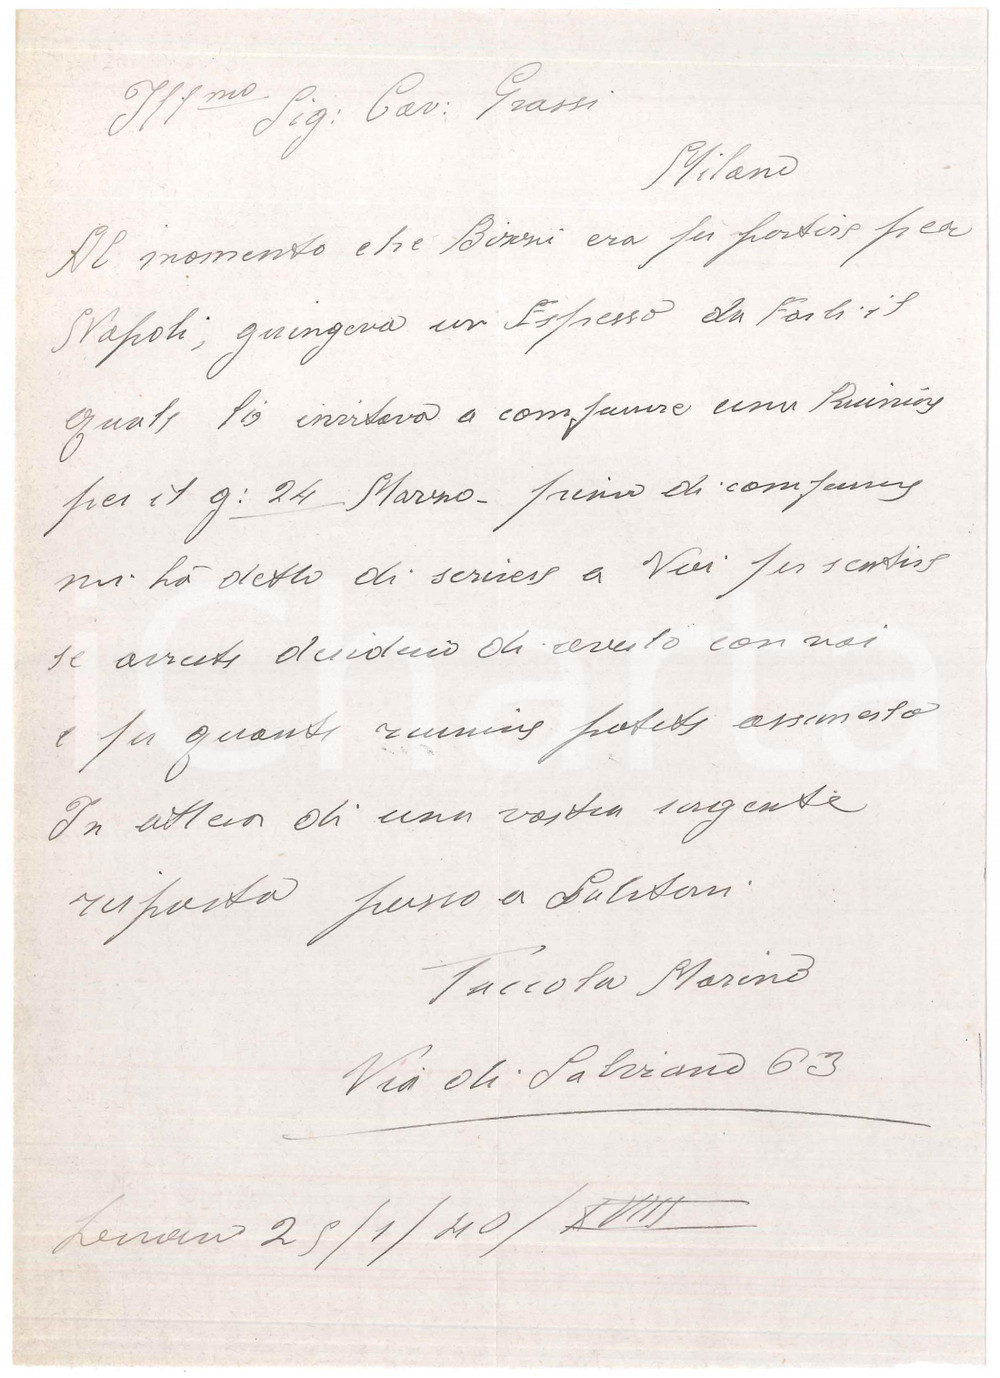 Ill mo Sig: Cav: Grassi
Milano
Al momento che Bizzi era per partire per
Napoli, giungeva un Espresso da Forli il
quale lo invitava a comparire una Riunione
per il g: 24 Marzo - prima di comparire
mi hà detto di scrivere a Voi per sentire
se avreste desiderio di averlo con voi
e per quante riunione potete assumerlo
In attesa di una vostra urgente
risposta passo a Salutarvi
Taccola Marino
Via di Salviano 63
29/1/40/XVIII
iCharta